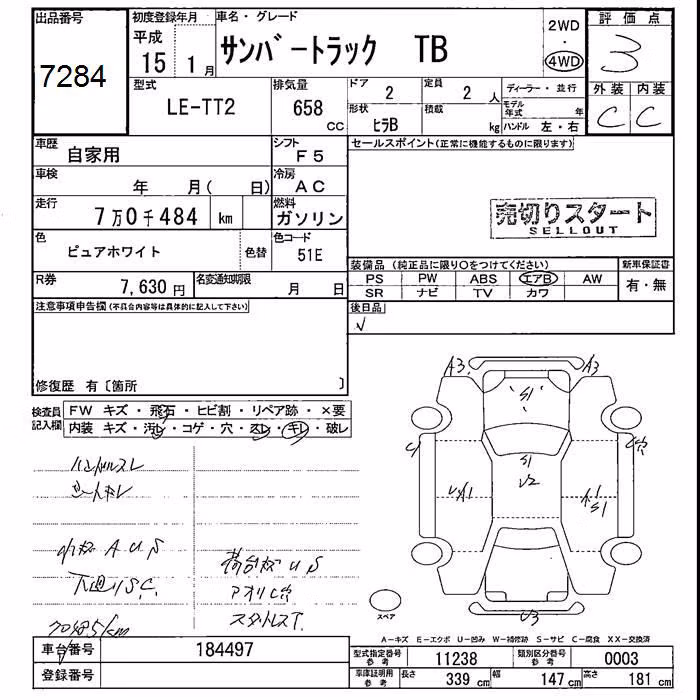 出品番号
7284
初度登録年月
平成
15 1月
車名・グレード
サンバートラック TB
2WD
・
4WD
評価点
3
外装 内装
C C
型式
LE-TT2
排気量
658
CC
ドア
2
定員
2 人
形状
ヒラB
積載
kg
ディーラー・並行
モデル年式 年
ハンドル 左・右
車歴
自家用
シフト
F5
車検
年 月( 日)
冷房
AC
走行
7万0千484 km
燃料
ガソリン
色
ピュアホワイト
色替
色コード
51E
R券
7,630円
名変通知期限
月 日
セールスポイント(正常に機能するものに限ります)
売切りスタート
SELLOUT
装備品 (純正品に限り○をつけてください)
新車保証書
PS PW ABS エアB AW
SR ナビ TV カワ
有・無
後日品
注意事項申告欄(不具合内容等は具体的に記入して下さい)
修復歴 有〔箇所 〕
検査員
記入欄
FW キズ・飛石・ヒビ割・リペア跡・×要
内装 キズ・汚レ・コゲ・穴・スレ・キレ・破レ
ハンドルスレ
シートキレ
A U S
下廻りS.C.
荷台 U S
アオリ
スタットレスT.
A3
A3
S1
S1
U2
S1
U3
スペア
A-キズ E-エクボ U-凹み W-補修跡 S-サビ C-腐食 XX-交換済
車台番号
184497
登録番号
型式指定番号
参考
11238
類別区分番号
参考
0003
車庫証明用
参考
長さ 339 cm 幅 147 cm 高さ 181 cm